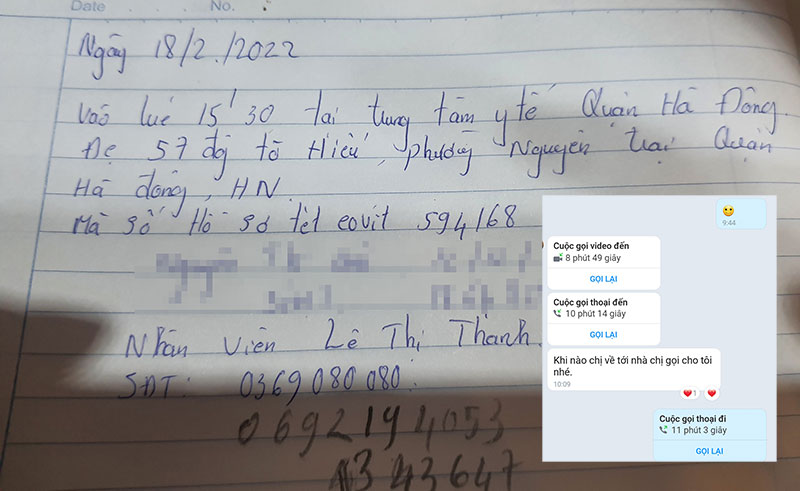 Date
No.
Ngày 18/2./2022
Vào lúc 15'30 tại trung tâm y tế Quận Hà Đông.
Đc 57 đg tô Hiếu, phường Nguyễn trại Quận
Hà đông, HN.
Mã số Hồ sơ tét covit 594168
Nhân viên Lê Thị Thanh.
SĐT: 0369080080.
0692194053
1343647
9:44
Cuộc gọi video đến
8 phút 49 giây
GỌI LẠI
Cuộc gọi thoại đến
10 phút 14 giây
GỌI LẠI
Khi nào chị về tới nhà chị gọi cho tôi
nhé.
10:09
1
Cuộc gọi thoại đi
11 phút 3 giây
GỌI LẠI